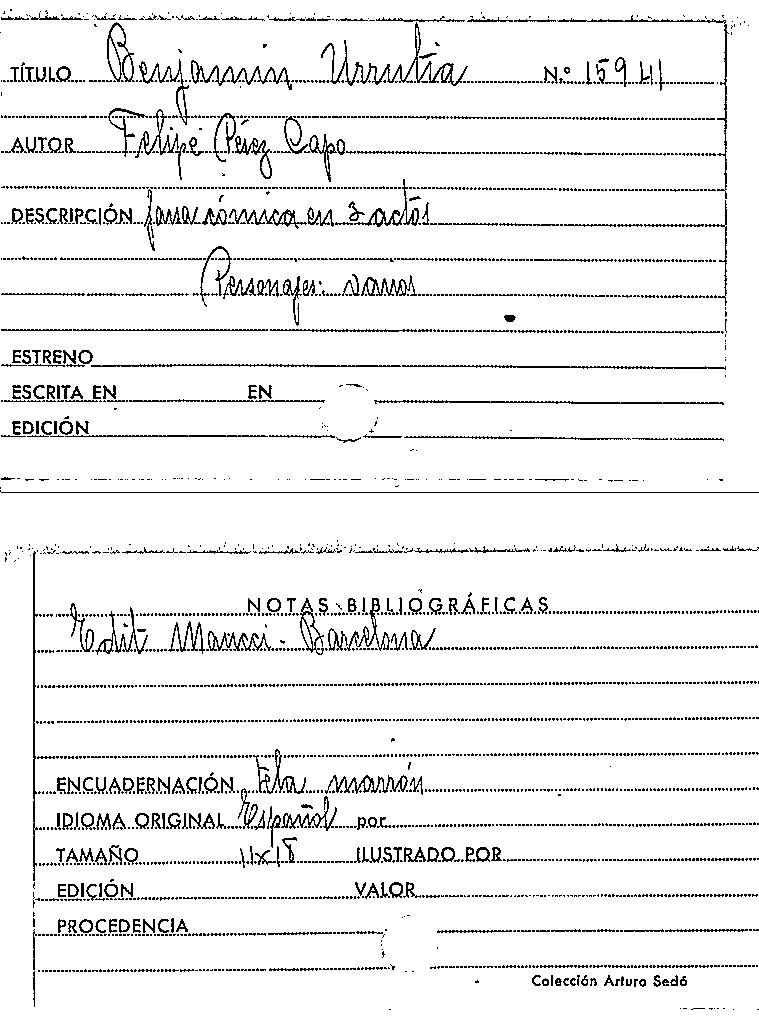 TÍTULO Benjamin Urrutia N.º 15941
AUTOR Felipe Pérez Capo
DESCRIPCIÓN farsa cómica en 3 actos
Personajes: varios
ESTRENO
ESCRITA EN EN
EDICIÓN
NOTAS BIBLIOGRÁFICAS
Edit Maucci - Barcelona
ENCUADERNACIÓN tela marrón
IDIOMA ORIGINAL Español por
TAMAÑO 11x18 ILUSTRADO POR
EDICIÓN VALOR
PROCEDENCIA
Colección Arturo Sedó